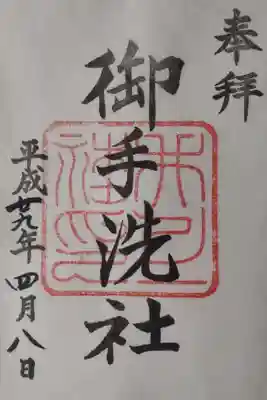 奉拝
御手洗社
平成廿九年四月八日